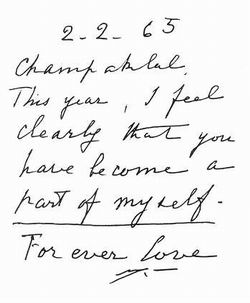 2-2-63
Champaklal,
This year, I feel
clearly that you
have become a
part of myself.
For ever love